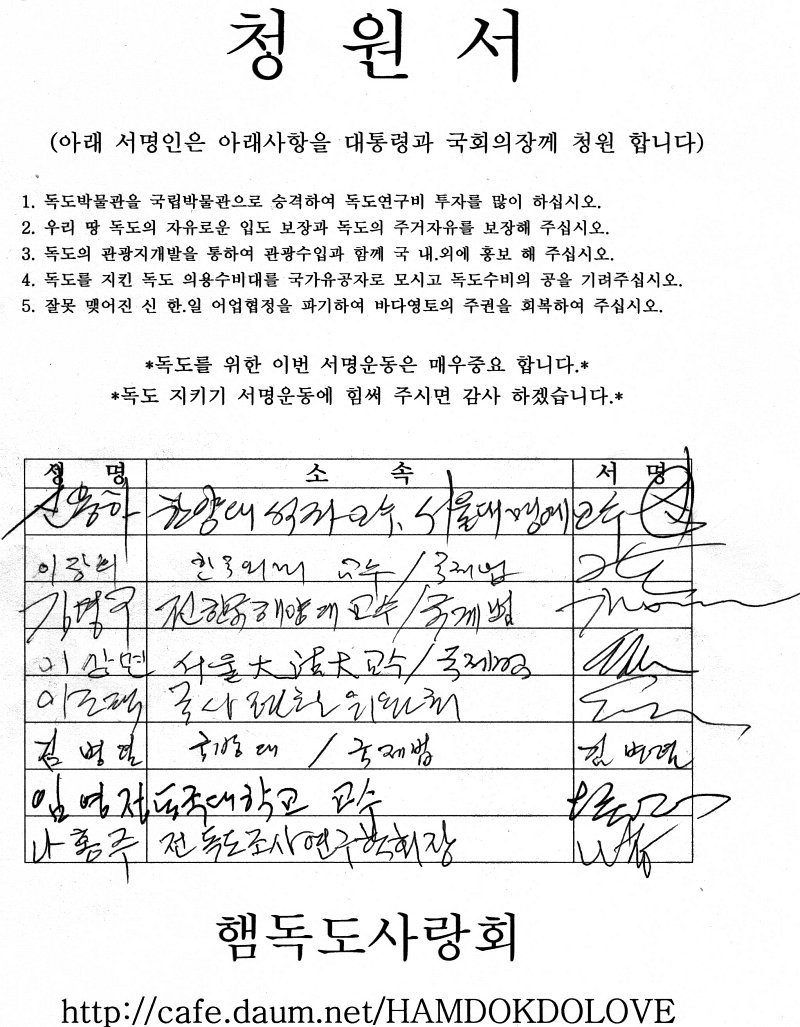 청 원 서
(아래 서명인은 아래사항을 대통령과 국회의장께 청원 합니다)
1. 독도박물관을 국립박물관으로 승격하여 독도연구비 투자를 많이 하십시오.
2. 우리 땅 독도의 자유로운 입도 보장과 독도의 주거자유를 보장해 주십시오.
3. 독도의 관광지개발을 통하여 관광수입과 함께 국 내.외에 홍보 해 주십시오.
4. 독도를 지킨 독도 의용수비대를 국가유공자로 모시고 독도수비의 공을 기려주십시오.
5. 잘못 맺어진 신 한.일 어업협정을 파기하여 바다영토의 주권을 회복하여 주십시오.
*독도를 위한 이번 서명운동은 매우중요 합니다.*
*독도 지키기 서명운동에 힘써 주시면 감사 하겠습니다.*
성 명 소 속 서 명
신용하 한양대 석좌교수, 서울대 명예교수
이장희 한국외대 교수/국제법
김명기 교수/국제법
이상면 서울大 法大 교수/국제법
국사편찬위원회
김병렬 국방대 / 국제법 김병렬
임영정 동국대학교 교수
나홍주 전 독도조사연구학회장
햄독도사랑회
http://cafe.daum.net/HAMDOKDOLOVE